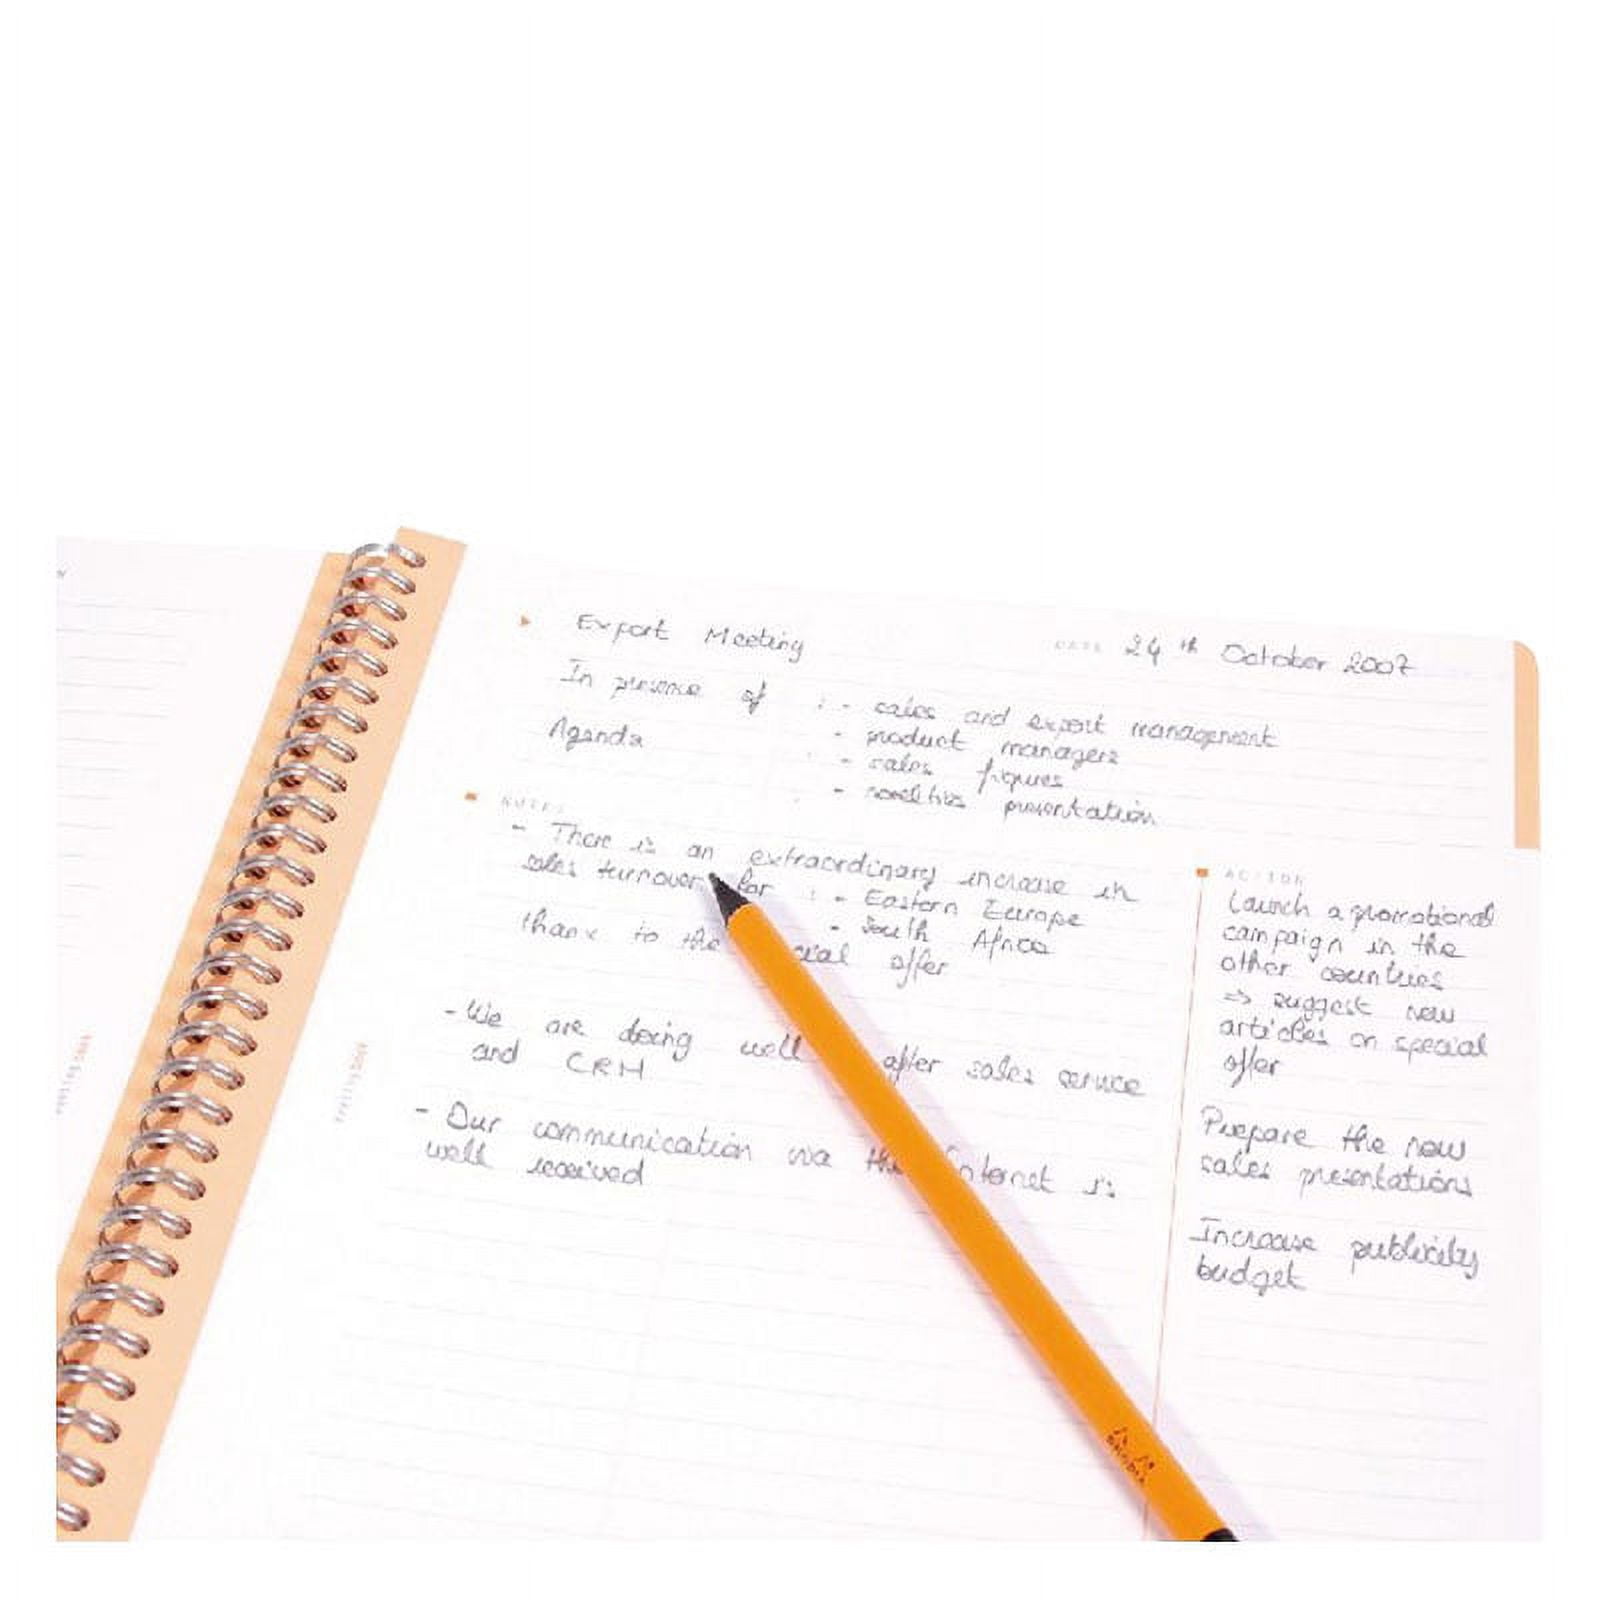 Export Meeting
DATE 24th October 2007
In presence of : - sales and export management
- product managers
Agenda : - sales figures
- novelties presentation
NOTES
- There is an extraordinary increase in
sales turnover for : - Eastern Europe
- South Africa
thanx to the cial offer
- We are doing well after sales service
and CRM
- Our communication via the Internet is
well received
ACTION
Launch a promotional
campaign in the
other countries
=> suggest new
articles on special
offer
Prepare the new
sales presentations
Increase publicity
budget
meeting book
meeting book
RHODIA